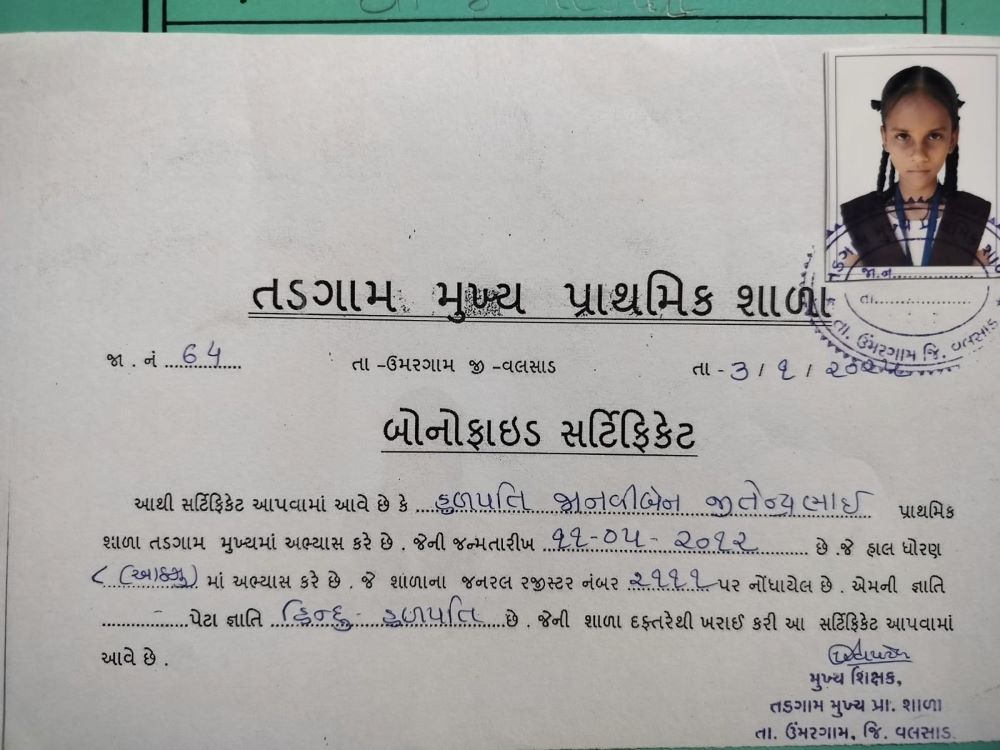 તડગામ મુખ્ય પ્રાથમિક શાળા
જા . નં 64 તા -ઉમરગામ જી -વલસાડ તા - 3 / ૧ / ૨૦૨૫
બોનોફાઇડ સર્ટિફિકેટ
આથી સર્ટિફિકેટ આપવામાં આવે છે કે હળપતિ જાનવીબેન જીતેન્દ્રભાઈ પ્રાથમિક
શાળા તડગામ મુખ્યમાં અભ્યાસ કરે છે . જેની જન્મતારીખ ૧૧-૦૫-૨૦૧૨ છે .જે હાલ ધોરણ
૮ (આઠમુ) માં અભ્યાસ કરે છે . જે શાળાના જનરલ રજીસ્ટર નંબર ૨૧૧૧ પર નોંધાયેલ છે . એમની જ્ઞાતિ
- પેટા જ્ઞાતિ હિન્દુ- હળપતિ છે . જેની શાળા દફતરેથી ખરાઈ કરી આ સર્ટિફિકેટ આપવામાં
આવે છે .
મુખ્ય શિક્ષક,
તડગામ મુખ્ય પ્રા. શાળા
તા. ઉંમરગામ, જિ. વલસાડ.
જા.ન.
તા.
તા. ઉંમરગામ જિ. વલસાડ